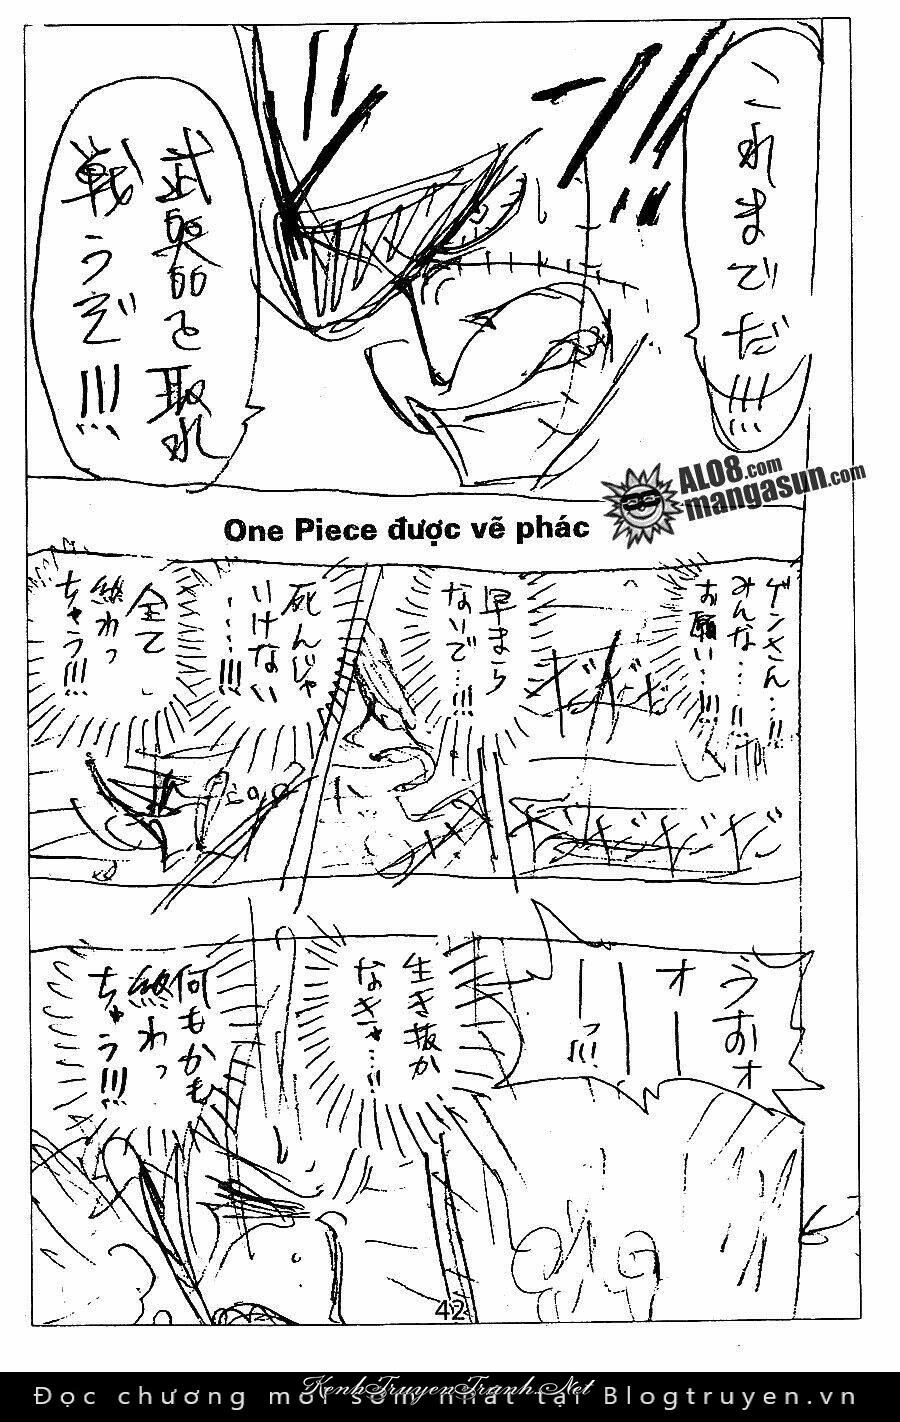 これまでだ!!!
武器を取れ
戦うぞ!!!
AL08.com
mangasun.com
One Piece được vẽ phác
ゲンさん…!!
みんな…!!
お願い…!!!
早まら
ないで…!!!
死んじゃ
いけない
…!!!
全て
終わっ
ちゃう!!!
うおオ
オー
ーーっ!!!
生き抜か
なきゃ…!!
何もかも
終わっ
ちゃう!!!
42
KenhTruyenTranh.Net
Đọc chương mới sớm nhất tại Blogtruyen.vn